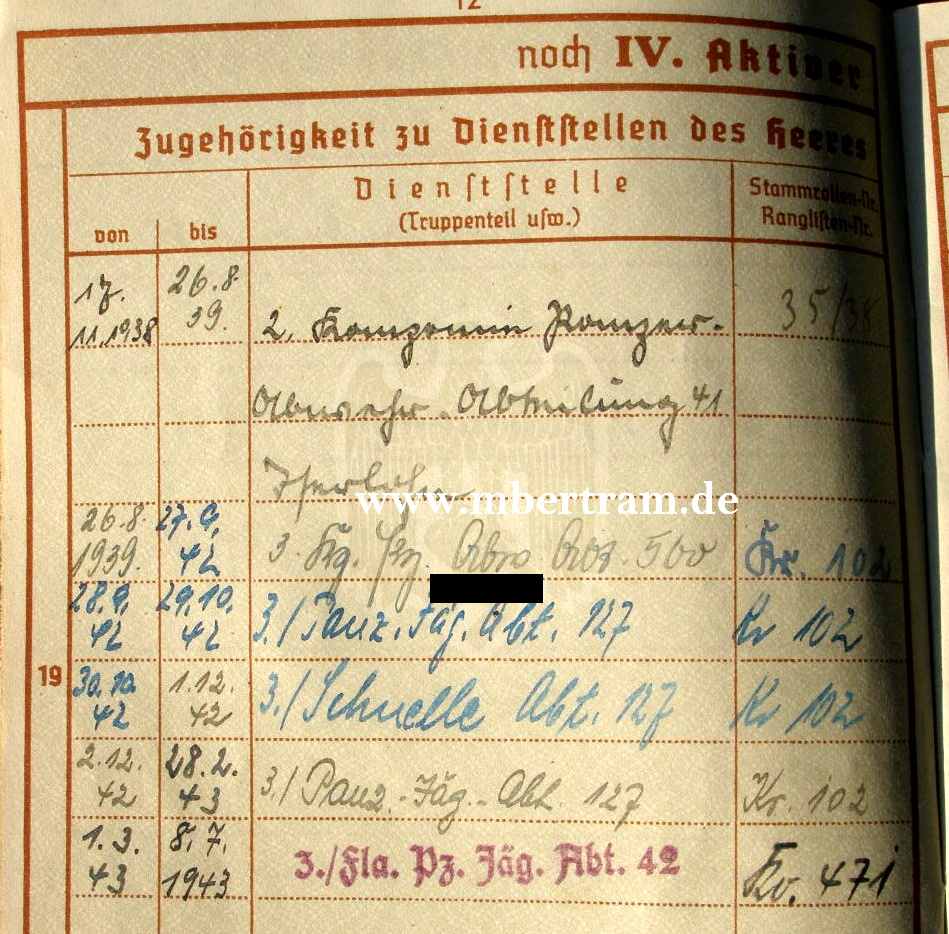 12
noch IV. Aktiver
Zugehörigkeit zu Dienststellen des Heeres
von bis Dienststelle (Truppenteil usw.) Stammrollen-Nr. Ranglisten-Nr.
17. 11.1938 26.8. 39. 2. Kompanie Panzer- 35/38
Abwehr Abteilung 41
Iserlohn
www.mbertram.de
26.8. 1939. 27.9. 42 3. Pz. Abw Abt. 500 Kr. 102
28.9. 42 29.10. 42 3./Panz. Jäg. Abt. 127 Kr 102
19 30.10. 42 1.12. 42 3./Schnelle Abt. 127 Kr 102
2.12. 42 28.2. 43 3./Panz.-Jäg.-Abt. 127 Kr. 102
1.3. 43 8.7. 1943 3./Fla. Pz. Jäg. Abt. 42 Kr. 471